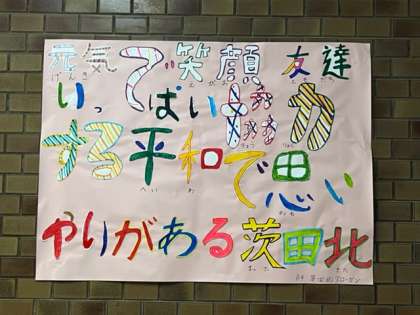 元気で笑顔友達
げんき えがお ともだち
いっぱい協力
きょうりょく
する平和で思い
へいわ おも
やりがある茨田北
まった きた